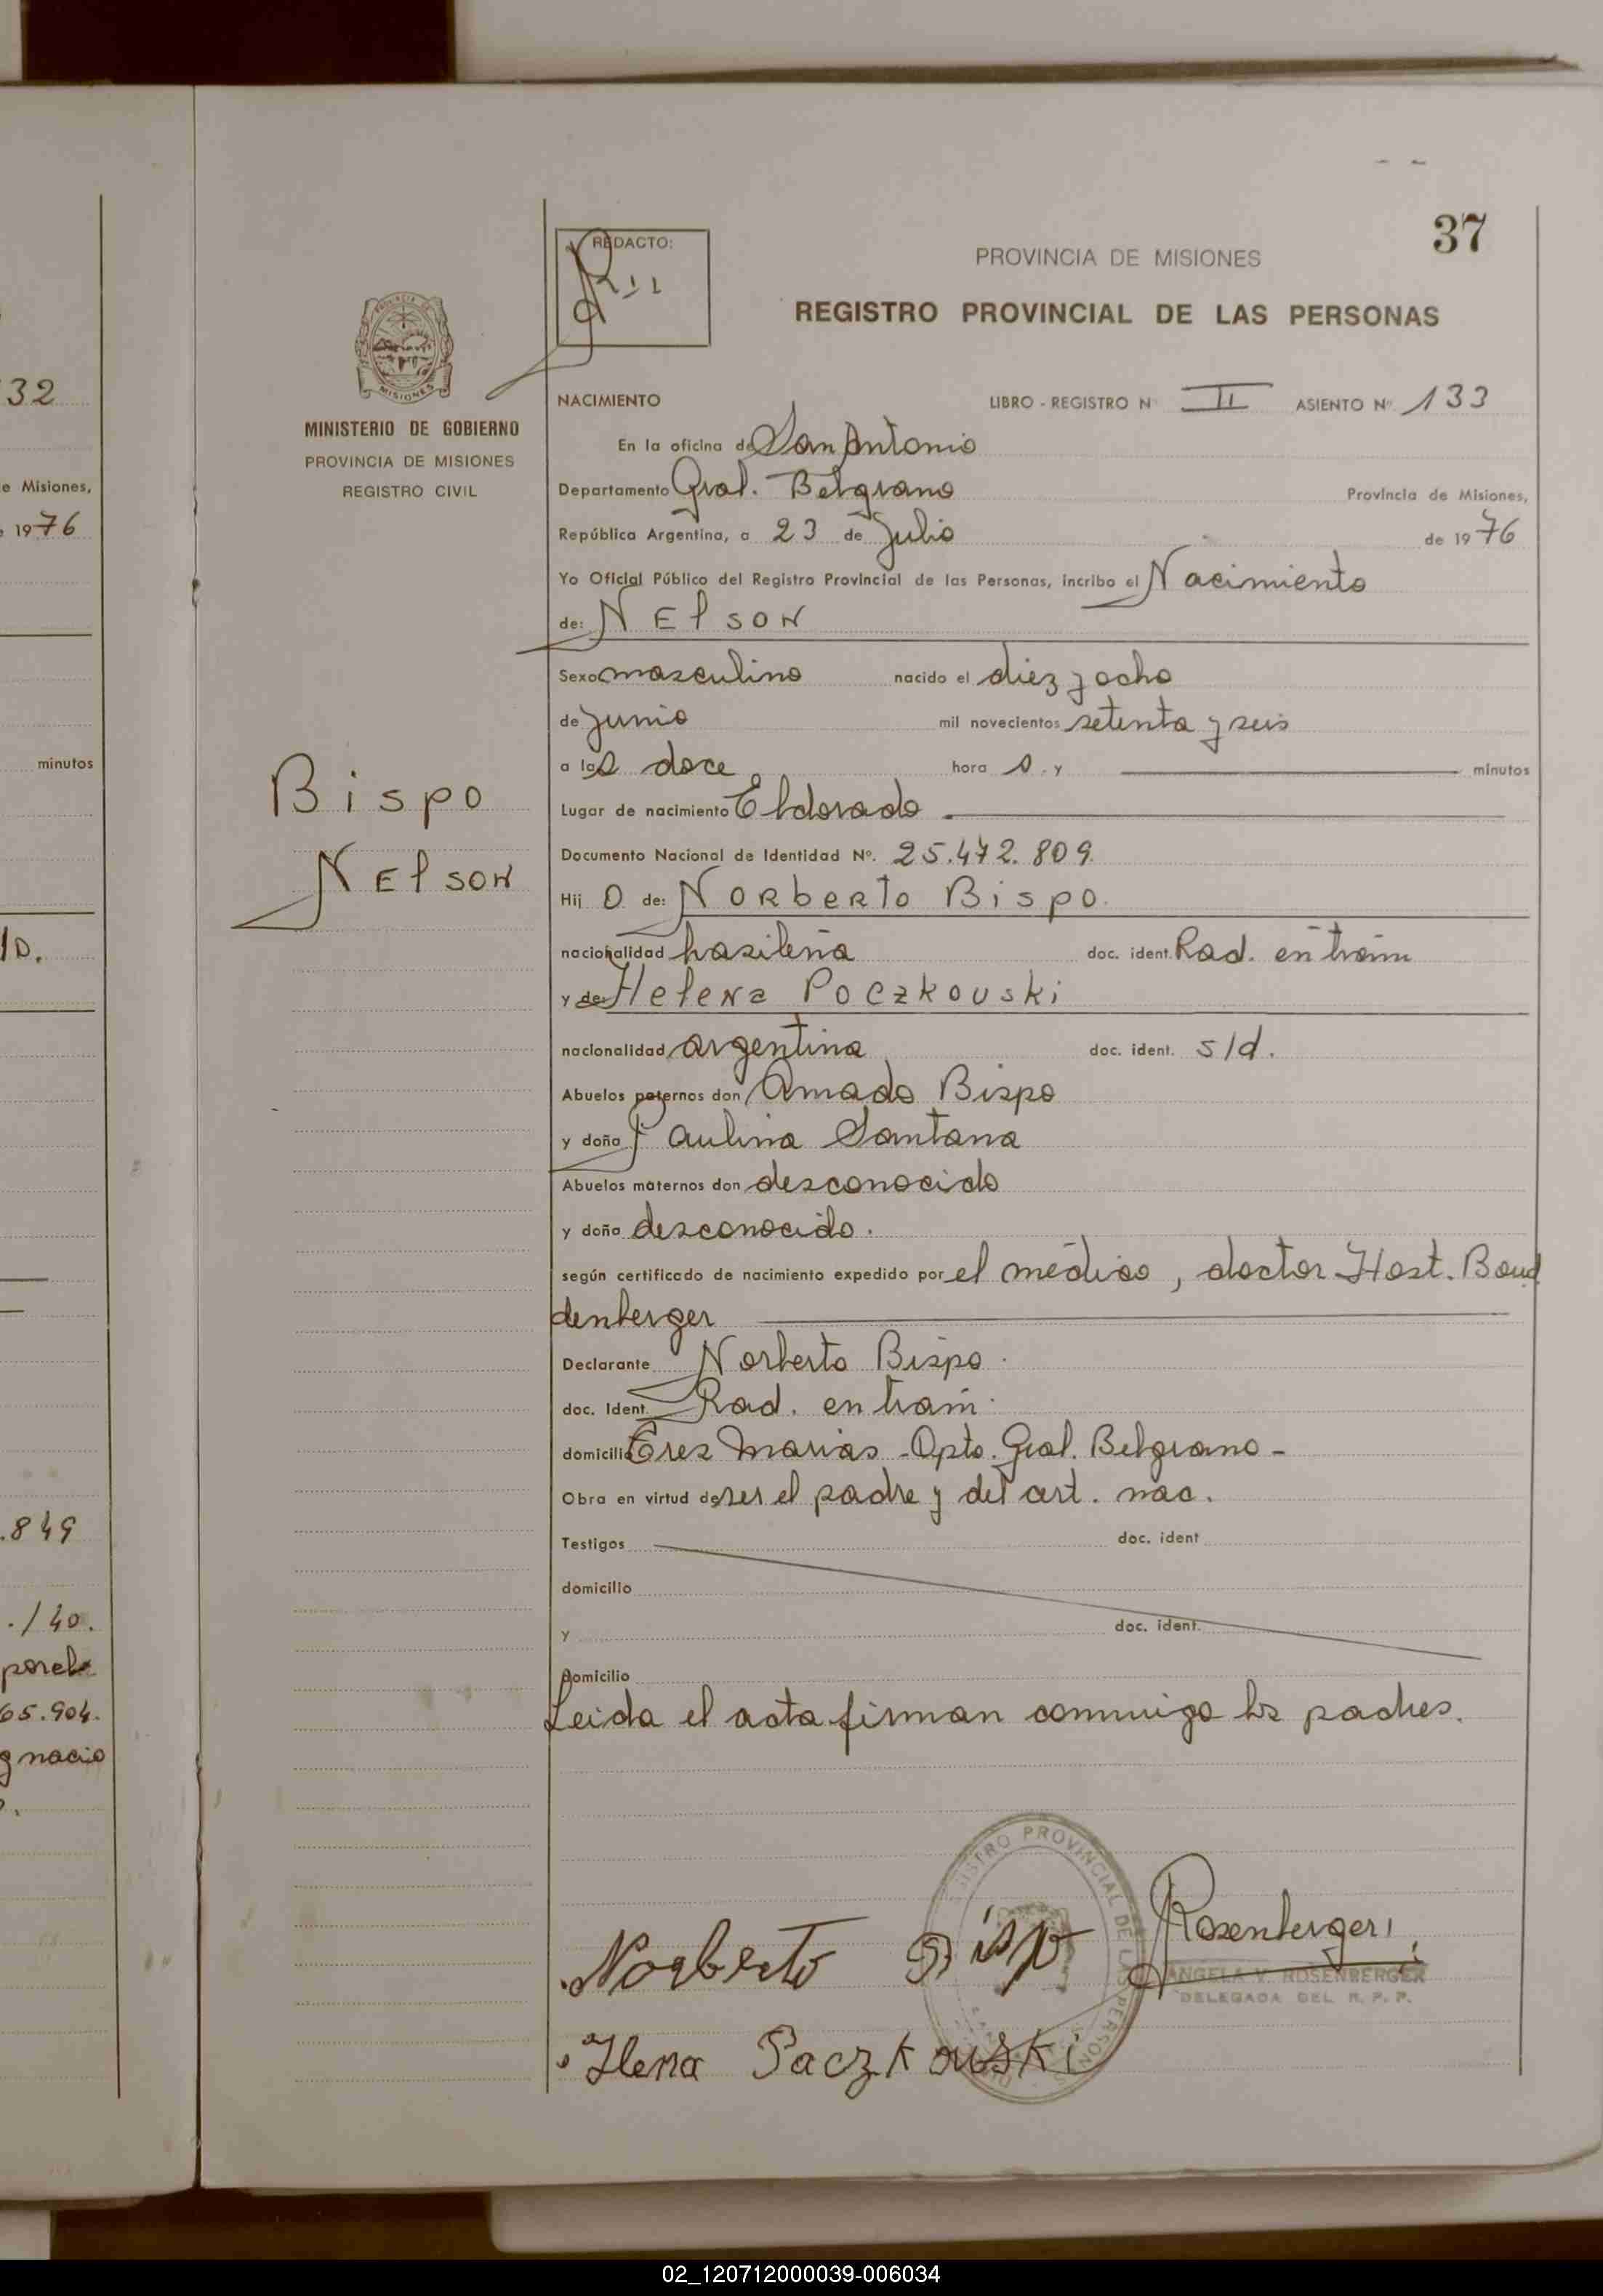 32
e Misiones,
1976
minutos
lo.
.849
./40.
65.904.
gnacio
MINISTERIO DE GOBIERNO
PROVINCIA DE MISIONES
REGISTRO CIVIL
Bispo
Nelson
REDACTO:
37
PROVINCIA DE MISIONES
REGISTRO PROVINCIAL DE LAS PERSONAS
NACIMIENTO LIBRO - REGISTRO Nº II ASIENTO Nº 133
En la oficina de San Antonio
Departamento Gral. Belgrano Provincia de Misiones,
República Argentina, a 23 de Julio de 1976
Yo Oficial Público del Registro Provincial de las Personas, incribo el Nacimiento
de: NElSON
Sexo masculino nacido el diez y ocho
de junio mil novecientos setenta y seis
a las doce hora s. y minutos
Lugar de nacimiento Eldorado
Documento Nacional de Identidad Nº. 25.472.809.
Hij o de: Norberto Bispo.
nacionalidad brasileña doc. ident. Rad. en trám
y de: Helena Poczkouski
nacionalidad argentina doc. ident. s/d.
Abuelos paternos don Amado Bispo
y doña Paulina Santana
Abuelos maternos don desconocido
y doña desconocido.
según certificado de nacimiento expedido por el médico, doctor Host. Baud
denberger
Declarante Norberto Bispo.
doc. Ident. Rad. en trám.
domicilio Tres Marias - Dpto. Gral. Belgrano -
Obra en virtud de ser el padre y del cert. nac.
Testigos doc. ident
domicilio
y doc. ident.
Domicilio
Leida el acta firman conmigo los padres.
REGISTRO PROVINCIAL DE LAS PERSONAS
Norberto Bispo
Rosenberger
ANGELA V. ROSENBERGER
DELEGADA DEL R. P. P.
Ilena Paczkouski
02_120712000039-006034